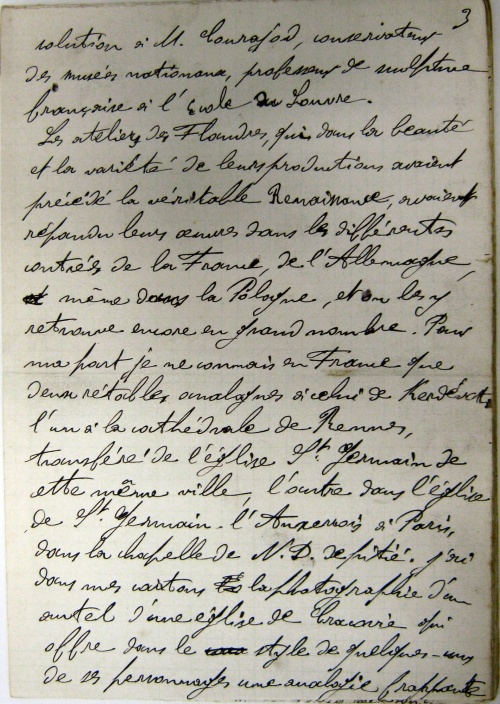 3
solution à M. Courajod, conservateur
des musées nationaux, professeur de sculpture
française à l'école du Louvre.
Les ateliers des Flandres, qui dans la beauté
et la variété de leurs productions avaient
précédé la véritable Renaissance, avaient
répandu leurs œuvres dans les différentes
contrées de la France, de l'Allemagne,
et même dans la Pologne, et on les y
retrouve encore en grand nombre. Pour
ma part je ne connais en France que
deux rétables analogues à celui de Kerdévot,
l'un à la cathédrale de Rennes,
transféré de l'église St Germain de
cette même ville, l'autre dans l'église
de St Germain-l'Auxerrois à Paris,
dans la chapelle de N. D. de pitié. J'ai
dans mes cartons la photographie d'un
autel d'une église de Cracovie qui
offre dans le style de quelques-uns
de ses personnages une analogie frappante